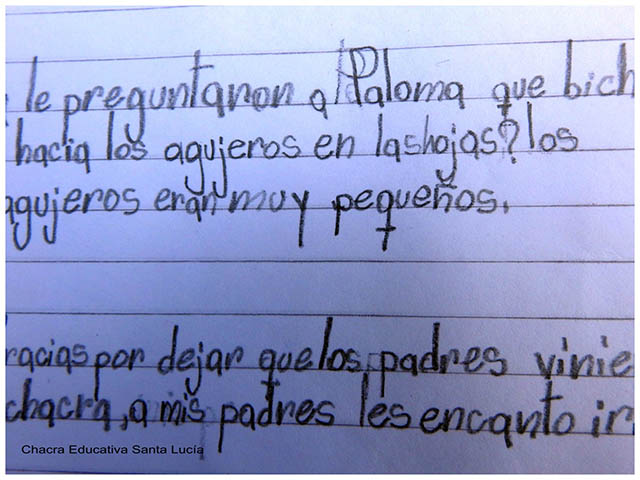 le preguntaron a Paloma que bich
hacia los agujeros en las hojas? los
agujeros eran muy pequeños.
racias por dejar que los padres vinie
chacra, a mis padres les encanto ir
Chacra Educativa Santa Lucía